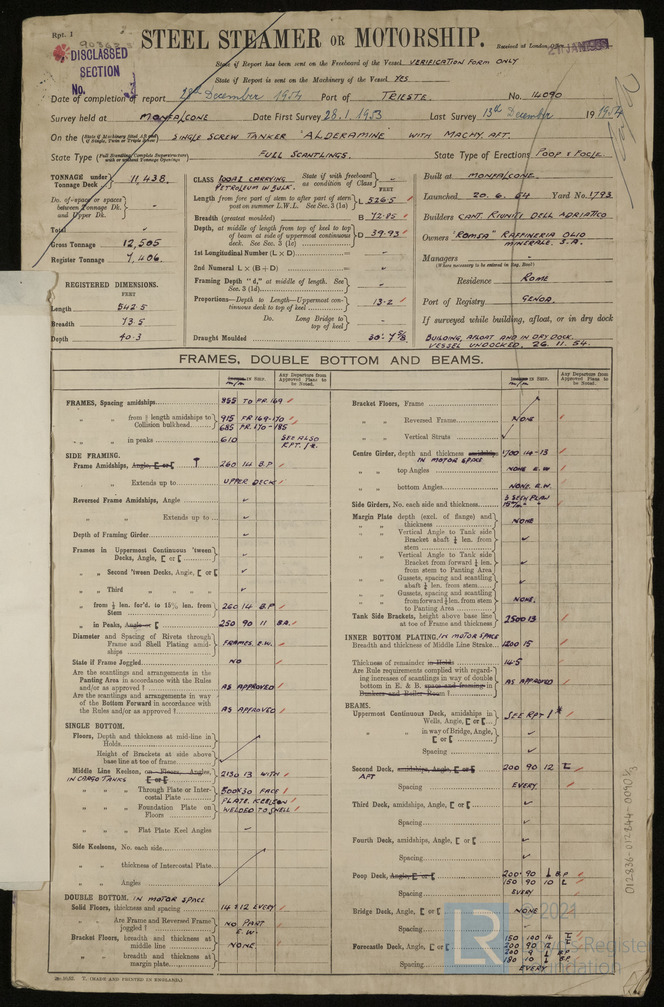 Rpt. 1
STEEL STEAMER OR MOTORSHIP.
Received at London Office
DISCLASSED
SECTION
No. 3
State if Report has been sent on the Freeboard of the Vessel VERIFICATION FORM ONLY
State if Report is sent on the Machinery of the Vessel YES
Date of completion of report 28th December 1954 Port of TRIESTE. No. 14090
Survey held at MONFALCONE Date First Survey 28.1.1953 Last Survey 13th December 19 1954
On the (State if Machinery fitted Aft and if Single, Twin or Triple Screw) SINGLE SCREW TANKER "ALDERAMINE" WITH MACHY. AFT.
State Type (Full Scantling, Complete Superstructure with or without Tonnage Openings) FULL SCANTLINGS. State Type of Erections POOP & FOCLE.
TONNAGE under Tonnage Deck 11,438.
Do. of space or spaces between Tonnage Dk. and Upper Dk.
Total
Gross Tonnage 12,505
Register Tonnage 7,406.
REGISTERED DIMENSIONS.
FEET
Length 542.5
Breadth 73.5
Depth 40.3
CLASS 100A1 CARRYING PETROLEUM IN BULK. State if with freeboard as condition of Class
FEET
Length from fore part of stem to after part of stern post on summer L.W.L. See Sec. 3 (1a) L 526.5
Breadth (greatest moulded) B 72.85
Depth, at middle of length from top of keel to top of beam at side of uppermost continuous deck. See Sec. 3 (1c) D 39.93
1st Longitudinal Number (L × D)
2nd Numeral L × (B + D)
Framing Depth "d," at middle of length. See Sec. 3 (1d)
Proportions—Depth to Length—Uppermost continuous deck to top of keel 13.2
Do. Long Bridge to top of keel
Draught Moulded 30' 7 5/8
Built at MONFALCONE.
Launched 20. 6. 54 Yard No. 1793
Builders CANT. RIUNITI DELL ADRIATICO
Owners "ROMSA" RAFFINERIA OLIO MINERALE. S.A.
Managers
(Where necessary to be entered in Reg. Book)
Residence ROME
Port of Registry GENOA.
If surveyed while building, afloat, or in dry dock
BUILDING, AFLOAT AND IN DRY DOCK.
VESSEL UNDOCKED, 26.11.54.
FRAMES, DOUBLE BOTTOM AND BEAMS.
m/m IN SHIP.
Any Departure from Approved Plans to be Noted.
FRAMES, Spacing amidships 855 TO FR.169
from 1/5 length amidships to Collision bulkhead 915 FR 169-170
685 FR. 170-185
in peaks 610 SEE ALSO RPT. 1*.
SIDE FRAMING.
Frame Amidships, Angle, [ or [ T 260 14 B.P
Extends up to UPPER DECK
Reversed Frame Amidships, Angle
Extends up to
Depth of Framing Girder
Frames in Uppermost Continuous 'tween Decks, Angle, [ or [
Second 'tween Decks, Angle, [ or [
Third
from 1/5 len. for'd. to 15% len. from Stem 260 14 B.P
in Peaks, Angle or [ 250 90 11 B.A.
Diameter and Spacing of Rivets through Frame and Shell Plating amidships FRAMES. E.W.
State if Frame Joggled NO
Are the scantlings and arrangements in the Panting Area in accordance with the Rules and/or as approved? AS APPROVED
Are the scantlings and arrangements in way of the Bottom Forward in accordance with the Rules and/or as approved? AS APPROVED
SINGLE BOTTOM.
Floors, Depth and thickness at mid-line in Holds
Height of Brackets at side above base line at toe of frame
Middle Line Keelson, on Floors, Angles, [ or [ 2130 13 WITH
IN CARGO TANKS
Through Plate or Intercostal Plate 500X30 FACE
Foundation Plate on Floors PLATE. KEELSON WELDED TO SHELL
Flat Plate Keel Angles
Side Keelsons, No. each side
thickness of Intercostal Plate
Angles
DOUBLE BOTTOM. IN MOTOR SPACE
Solid Floors, thickness and spacing 14 & 12 EVERY
Are Frame and Reversed Frame joggled? NO PART E.W.
Bracket Floors, breadth and thickness at middle line NONE.
breadth and thickness at margin plate
Bracket Floors, Frame
Reversed Frame NONE
Vertical Struts
Centre Girder, depth and thickness amidships 1700 14-13
IN MOTOR SPACE
top Angles NONE E.W
bottom Angles NONE. E.W.
Side Girders, No. each side and thickness
Margin Plate depth (excl. of flange) and thickness NONE
Vertical Angle to Tank side Bracket abaft 1/4 len. from stem
Vertical Angle to Tank side Bracket from forward 1/4 len. from stem to Panting Area
Gussets, spacing and scantling abaft 1/4 len. from stem
Gussets, spacing and scantling from forward 1/4 len. from stem to Panting Area NONE.
Tank Side Brackets, height above base line at toe of Frame and thickness 2500 13
INNER BOTTOM PLATING. IN MOTOR SPACE
Breadth and thickness of Middle Line Strake 1200 15
Thickness of remainder in Holds 14.5
Are Rule requirements complied with regarding increases of scantlings in way of double bottom in E. & B. space and framing in Bunkers and Boiler Room AS APPROVED
BEAMS.
Uppermost Continuous Deck, amidships in Wells, Angle, [ or [ SEE RPT 1*
in way of Bridge, Angle, [ or [
Spacing
Second Deck, amidships, Angle, [ or [ 200 90 12
AFT
Spacing EVERY
Third Deck, amidships, Angle, [ or [
Spacing
Fourth Deck, amidships, Angle, [ or [
Spacing
Poop Deck, Angle, [ or [ 200 90 B.P
150 90 10
Spacing EVERY
Bridge Deck, Angle, [ or [ NONE
Spacing
Forecastle Deck, Angle, [ or [ 150 100 14
200 90 12
200 9 B.P
180 10 B.P
Spacing EVERY
(MADE AND PRINTED IN ENGLAND.)
012836-012844-0090 1/3
LR
© 2021
Lloyd's Register
Foundation